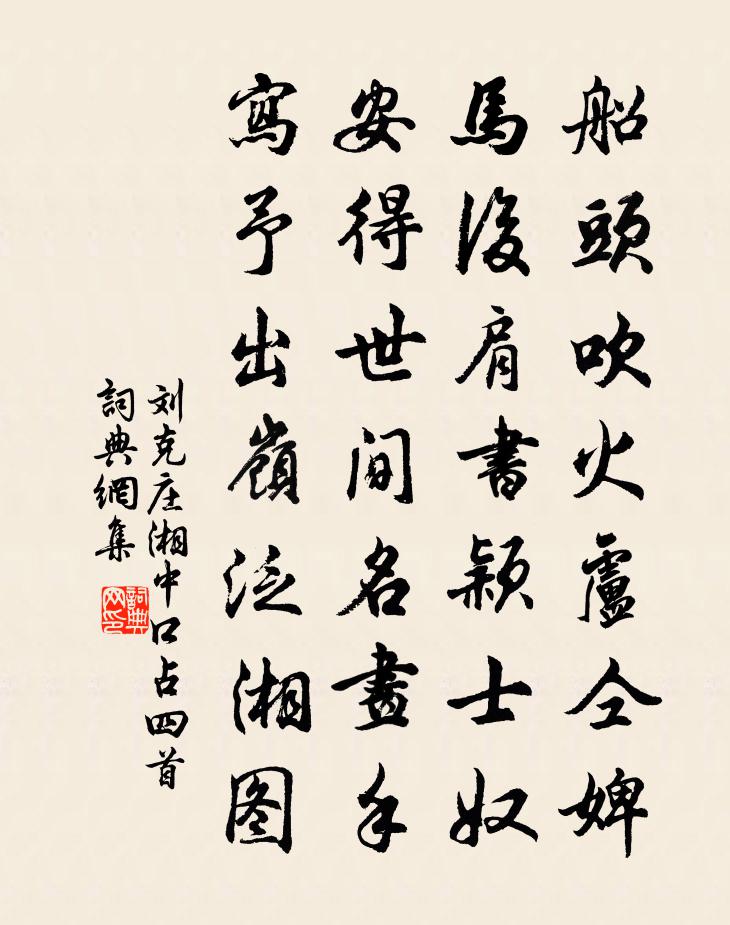 船頭吹火盧仝婢
馬後肩書穎士奴
安得世間名畫手
寫予出嶺泛湘图
刘克庄湘中口占四首
詞典網集
詞典网印